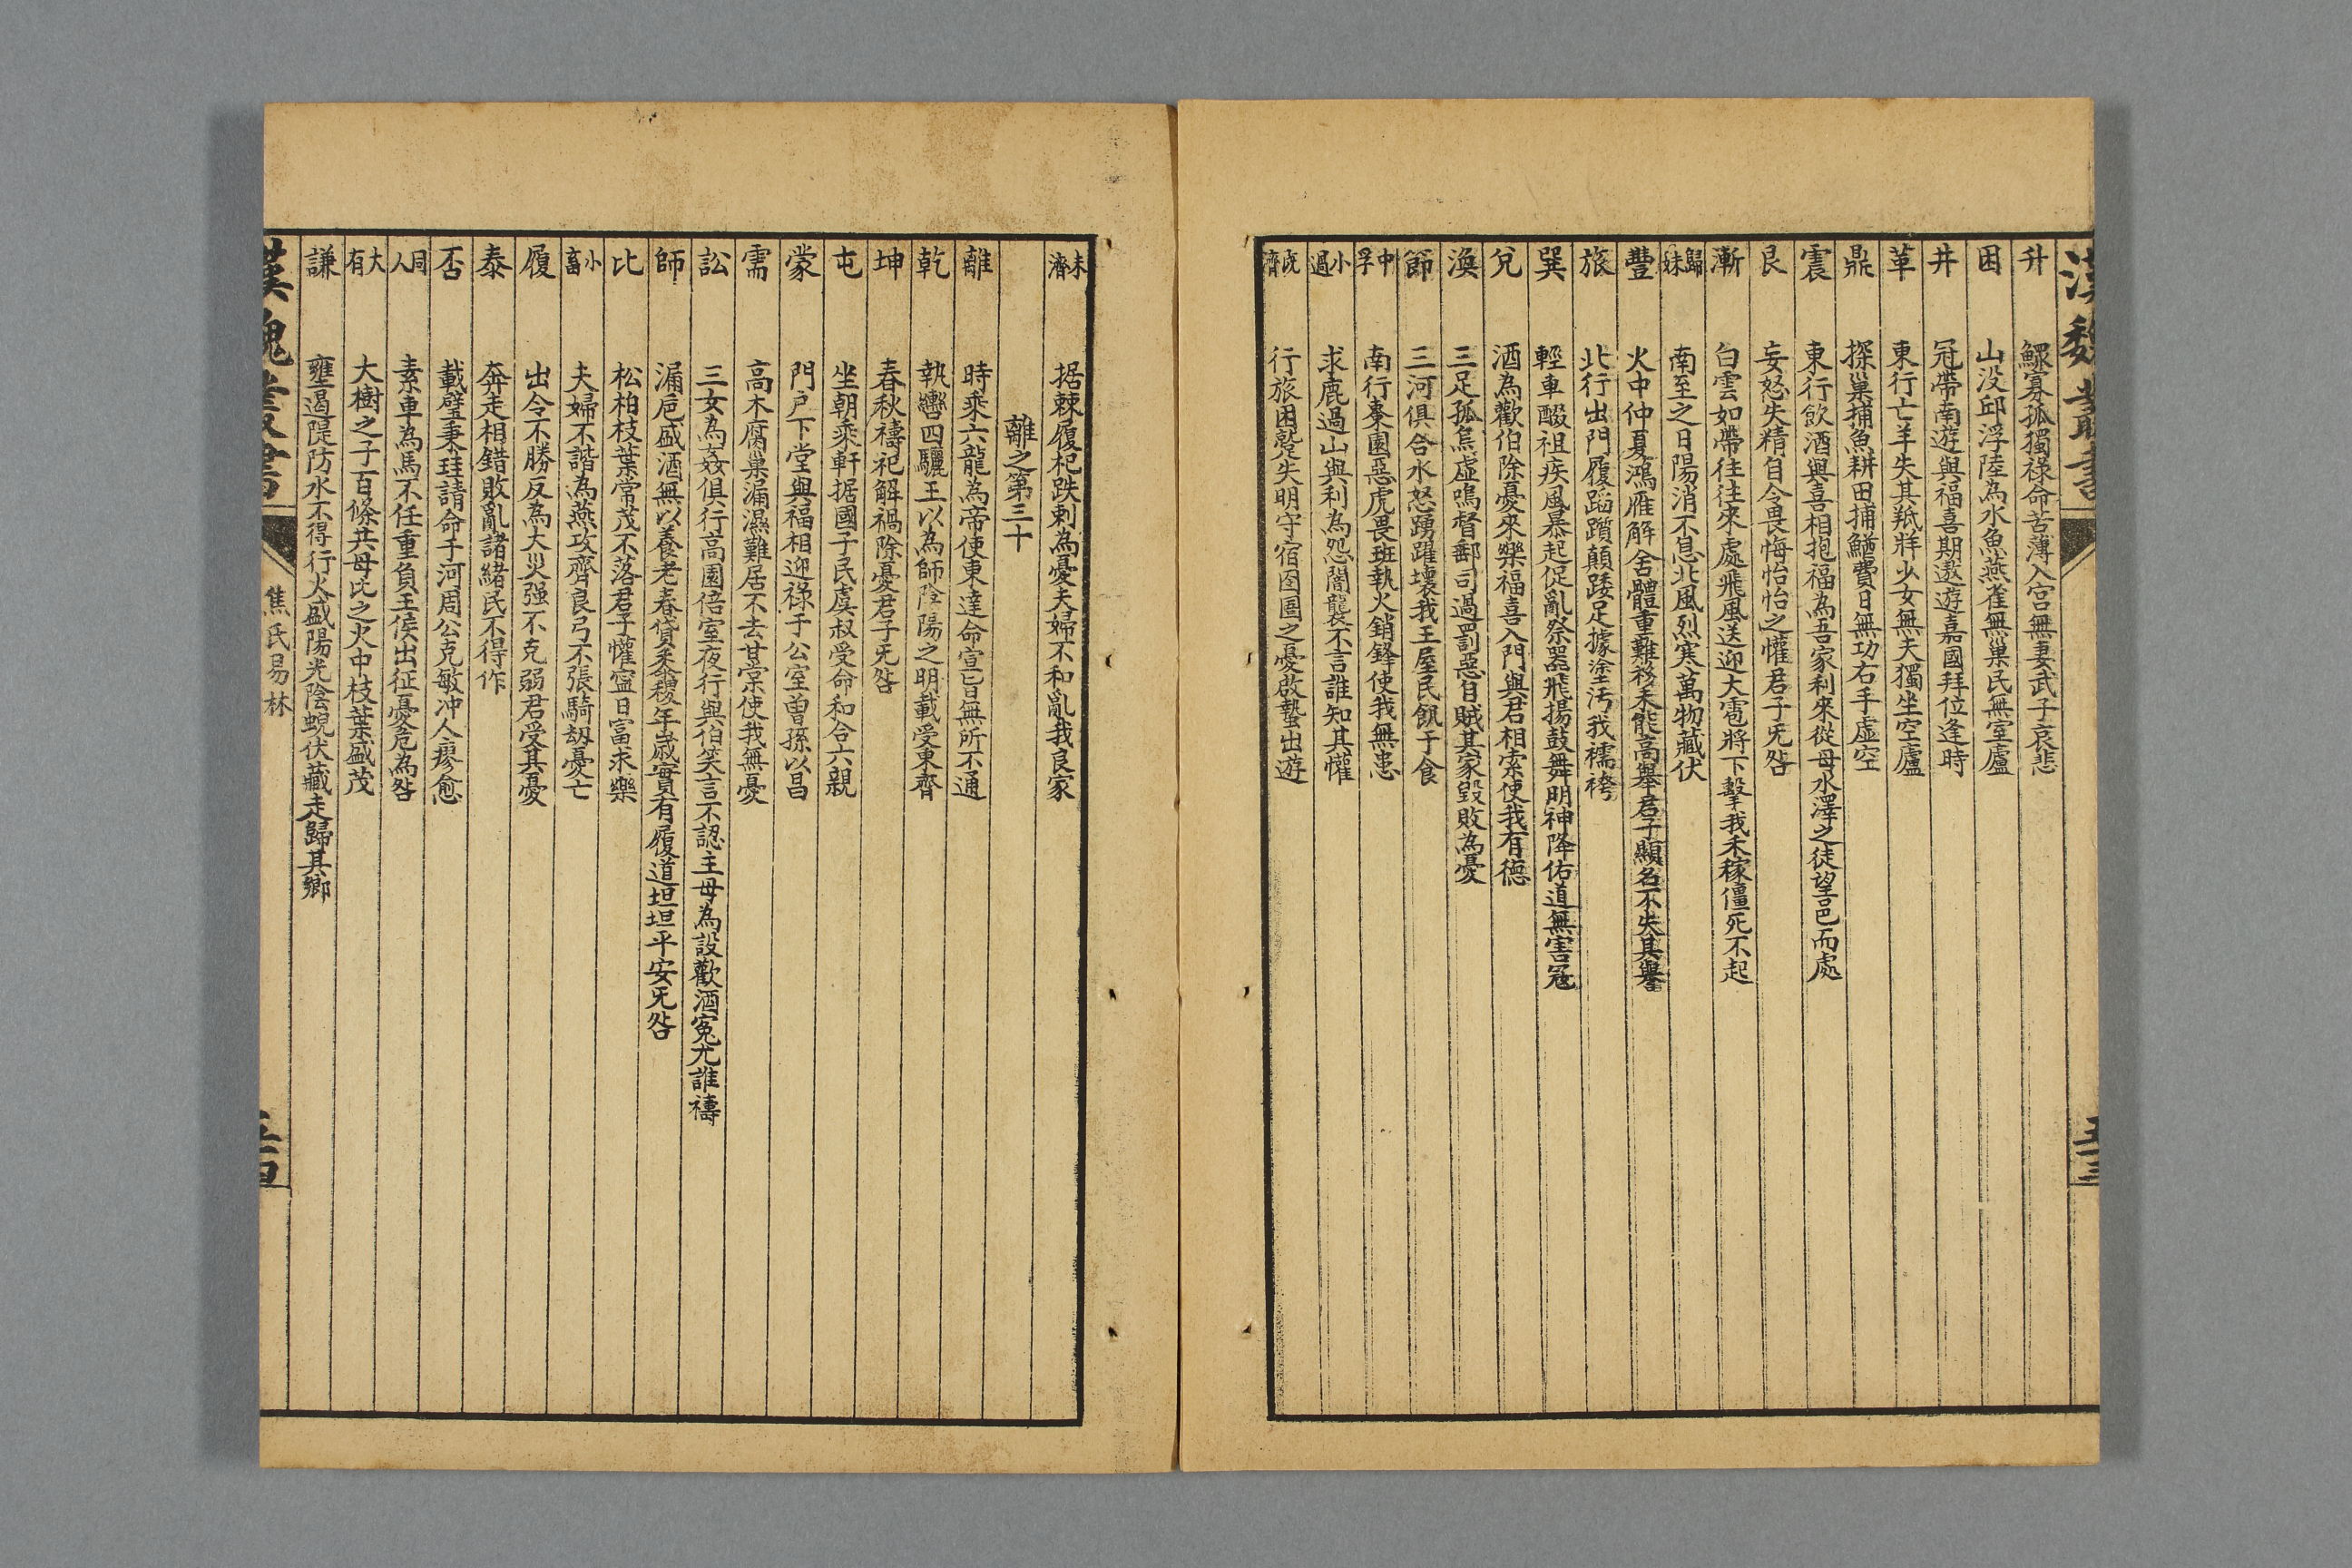 漢魏叢書
五十三
升 鰥寡孤獨祿命苦薄入宮無妻武子哀悲
困 山没邱浮陸為水魚燕雀無巢民無室廬
井 冠帶南遊與福喜期邀遊嘉國拜位逢時
革 東行亡羊失其羝牂少女無夫獨坐空廬
鼎 探巢捕魚耕田捕鰌費日無功右手虛空
震 東行飲酒與喜相抱福為吾家利來從母水澤之徒望邑而處
艮 妄怒失精自令畏悔怡怡之懽君子无咎
漸 白雲如帶往往來處飛風送迎大雹將下擊我禾稼僵死不起
歸妹 南至之日陽消不息北風烈寒萬物藏伏
豐 火中仲夏鴻雁解舍體重難移未能高舉君子顯名不失其譽
旅 北行出門履蹈躓顛踒足據塗汚我襦袴
巽 輕車醊祖疾風暴起促亂祭器飛揚鼓舞明神降佑道無害寇
兌 酒為歡伯除憂來樂福喜入門與君相索使我有德
渙 三足孤烏虛鳴督郵司過罰惡自賊其家毀敗為憂
節 三河俱合水怒踴躍壞我王屋民飢于食
中孚 南行棗園惡虎畏班執火銷鋒使我無患
小過 求鹿過山與利為怨闇聾不言誰知其懽
既濟 行旅困蹷失明守宿囹圄之憂啟蟄出遊
未濟 据棘履杞跌刺為憂夫婦不和亂我良家
離之第三十
離 時乘六龍為帝使東達命宣旨無所不通
乾 執轡四驪王以為師陰陽之明載受東齊
坤 春秋禱祀解禍除憂君子无咎
屯 坐朝乘軒据國子民虞叔受命和合六親
蒙 門戶下堂與福相迎祿于公室曽孫以昌
需 高木腐巢漏濕難居不去甘棠使我無憂
訟 三女為姦俱行高園倍室夜行與伯笑言不認主母為設歡酒冤尤誰禱
師 漏卮盛酒無以養老春貸黍稷年歲實有履道坦坦平安无咎
比 松柏枝葉常茂不落君子懽寍日富求樂
小畜 夫婦不諧為燕攻齊良弓不張騎刼憂亡
履 出令不勝反為大災强不克弱君受其憂
泰 奔走相錯敗亂諸緒民不得作
否 載璧秉珪請命于河周公克敏冲人瘳愈
同人 素車為馬不任重負王侯出征憂危為咎
大有 大樹之子百條共母比之火中枝葉盛茂
謙 壅遏隄防水不得行火盛陽光陰蜺伏藏走歸其鄉
漢魏叢書
焦氏易林
五十四